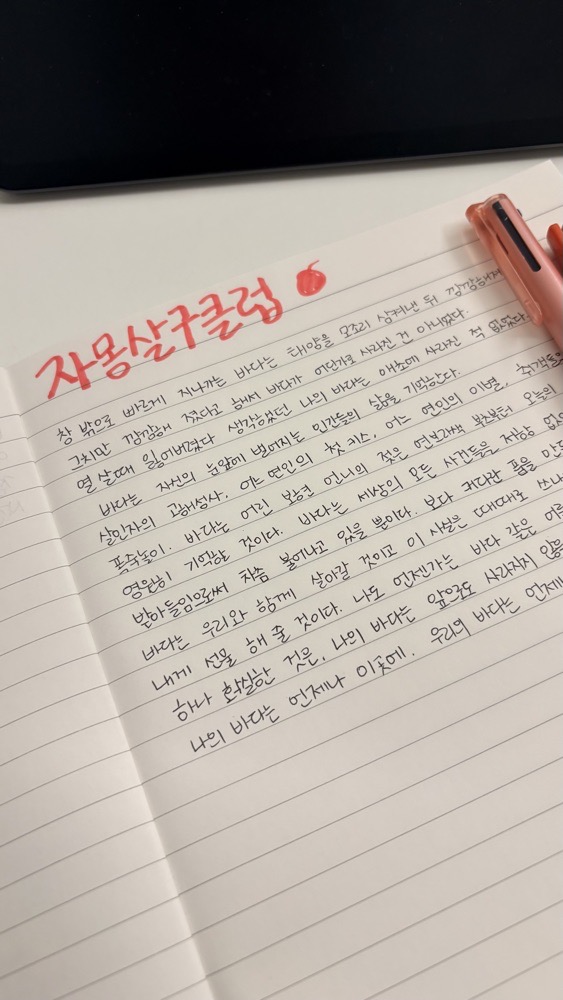 자몽살구클럽
창 밖으로 빠르게 지나가는 바다는 태양을 모조리 삼켜낸 뒤 깜깜해져
그치만 깜깜해 졌다고 해서 바다가 어딘가로 사라진 건 아니었다.
열 살때 잃어버렸다 생각했었던 나의 바다는 애초에 사라진 적 없었다.
바다는 자신의 눈앞에 벌어지는 인간들의 삶을 기억한다.
살인자의 고해성사. 어느 연인의 첫 키스, 어느 연인의 이별, 취객들의
폭죽놀이. 바다는 어린 보현 언니의 젖은 연보라색 북부터 오늘의
영원히 기억할 것이다. 바다는 세상의 모든 사건들을 저항 없이
받아들임으로써 차츰 불어나고 있을 뿐이다. 보다 커다란 품을 만들
바다는 우리와 함께 살아갈 것이고 이 사실은 때때로
내게 선물 해 줄 것이다. 나도 언젠가는 바다 같은 어른
하나 확실한 것은, 나의 바다는 앞으로도 사라지지 않을
나의 바다는 언제나 이곳에. 우리의 바다는 언제